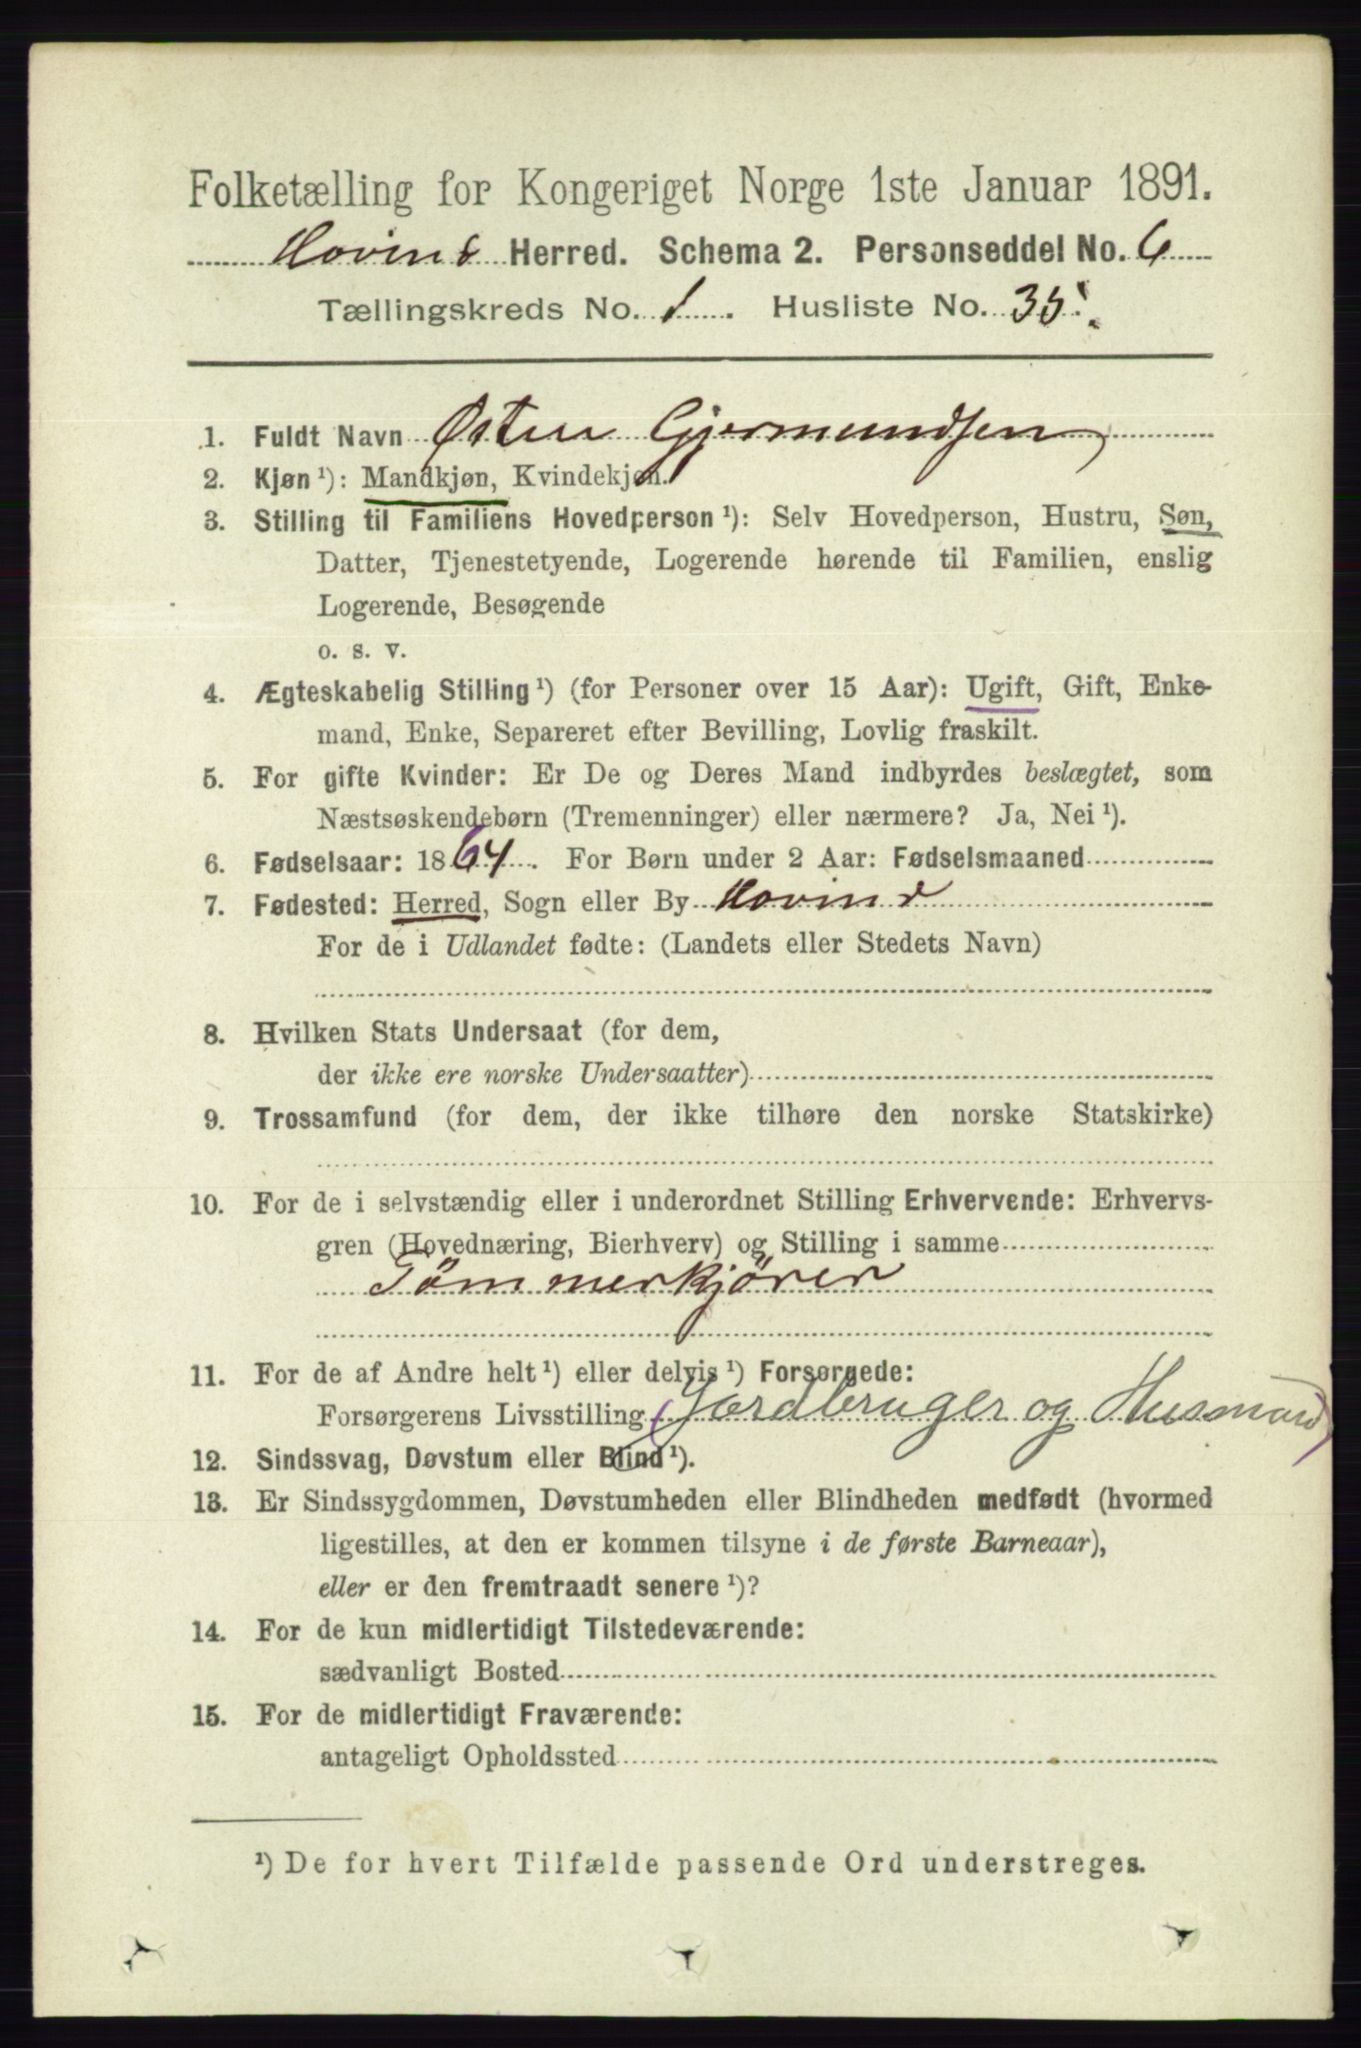 Folketælling for Kongeriget Norge 1ste Januar 1891.
Hovind Herred. Schema 2. Personseddel No. 6
Tællingskreds No. 1. Husliste No. 35.
1. Fuldt Navn Østen Gjermundsen
2. Kjøn ¹): Mandkjøn, Kvindekjøn.
3. Stilling til Familiens Hovedperson ¹): Selv Hovedperson, Hustru, Søn,
Datter, Tjenestetyende, Logerende hørende til Familien, enslig
Logerende, Besøgende
o. s. v.
4. Ægteskabelig Stilling ¹) (for Personer over 15 Aar): Ugift, Gift, Enke-
mand, Enke, Separeret efter Bevilling, Lovlig fraskilt.
5. For gifte Kvinder: Er De og Deres Mand indbyrdes beslægtet, som
Næstsøskendebørn (Tremenninger) eller nærmere? Ja, Nei ¹).
6. Fødselsaar: 1864. For Børn under 2 Aar: Fødselsmaaned
7. Fødested: Herred, Sogn eller By Hovind
For de i Udlandet fødte: (Landets eller Stedets Navn)
8. Hvilken Stats Undersaat (for dem,
der ikke ere norske Undersaatter)
9. Trossamfund (for dem, der ikke tilhøre den norske Statskirke)
10. For de i selvstændig eller i underordnet Stilling Erhvervende: Erhvervs-
gren (Hovednæring, Bierhverv) og Stilling i samme
Tömmerkjörer
11. For de af Andre helt ¹) eller delvis ¹) Forsørgede:
Forsørgerens Livsstilling (Jordbruger og Husmand)
12. Sindssvag, Døvstum eller Blind ¹).
13. Er Sindssygdommen, Døvstumheden eller Blindheden medfødt (hvormed
ligestilles, at den er kommen tilsyne i de første Barneaar),
eller er den fremtraadt senere ¹)?
14. For de kun midlertidigt Tilstedeværende:
sædvanligt Bosted
15. For de midlertidigt Fraværende:
antageligt Opholdssted
¹) De for hvert Tilfælde passende Ord understreges.